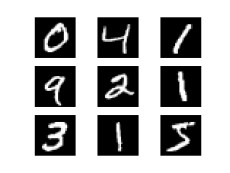 0 4 1
9 2 1
3 1 5